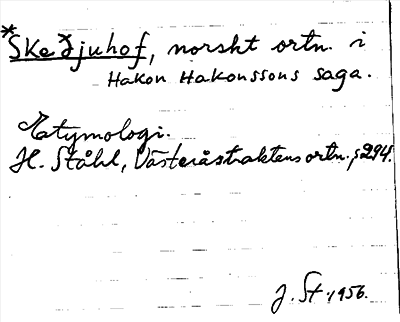 *Skeðjuhof, norskt ortn. i
Hakon Hakonssons saga.
Etymologi.
H. Ståhl, Västeråstraktens ortn., s 294.
J. St. 1956.